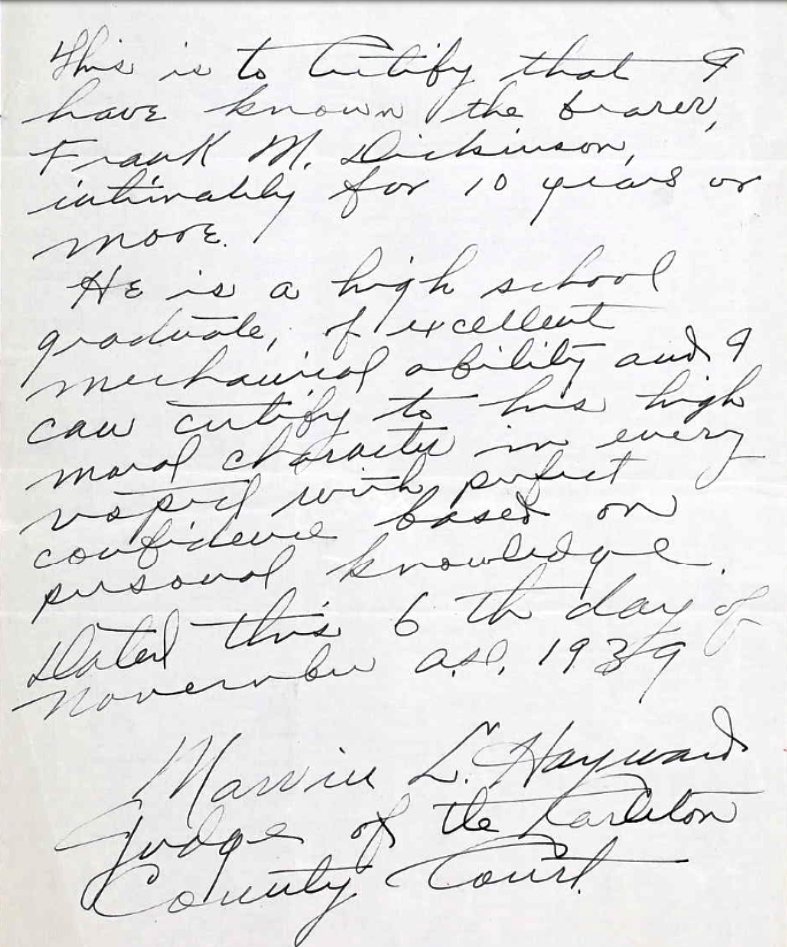 This is to Certify that I
have known the bearer,
Frank M. Dickinson,
intimately for 10 years or
more.
He is a high school
graduate, of excellent
mechanical ability and I
can certify to his high
moral character in every
respect with perfect
confidence based on
personal knowledge.
Dated this 6 th day of
November A.D. 1939
Marvin L. Hayward
Judge of the Carleton
County Court.